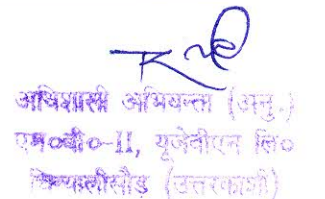 अधिशासी अभियन्ता (अनु.)
एम०बी०-II, यूजेवीएन लि०
चिन्यालीसौड़ (उत्तरकाशी)